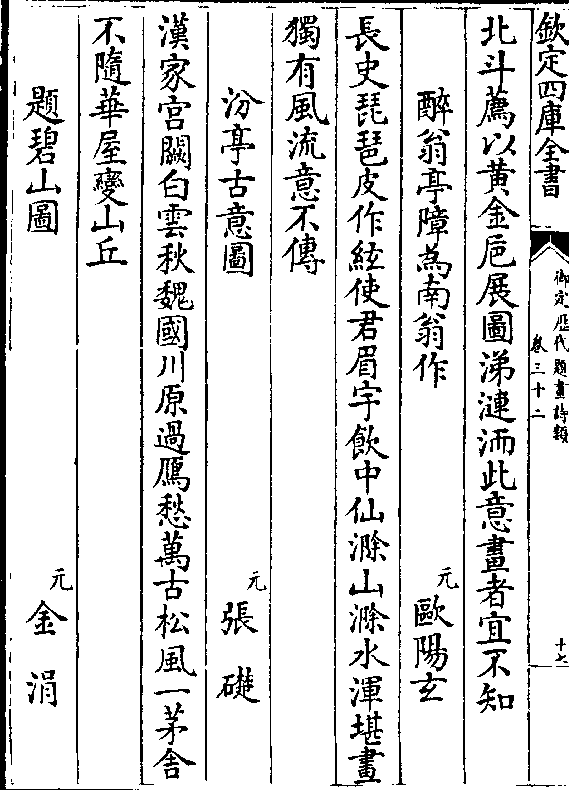 欽定四庫全書
御定歷代題畫詩類
卷三十二
十七
北斗薦以黄金巵展圖涕漣洏此意畫者宜不知
醉翁亭障為南翁作
元
歐陽玄
長史琵琶皮作絃使君眉宇飲中仙滁山滁水渾堪畫
獨有風流意不傳
汾亭古意圖
元
張礎
漢家宫闕白雲秋魏國川原過鴈愁萬古松風一茅舎
不隨華屋變山丘
題碧山圖
元
金涓